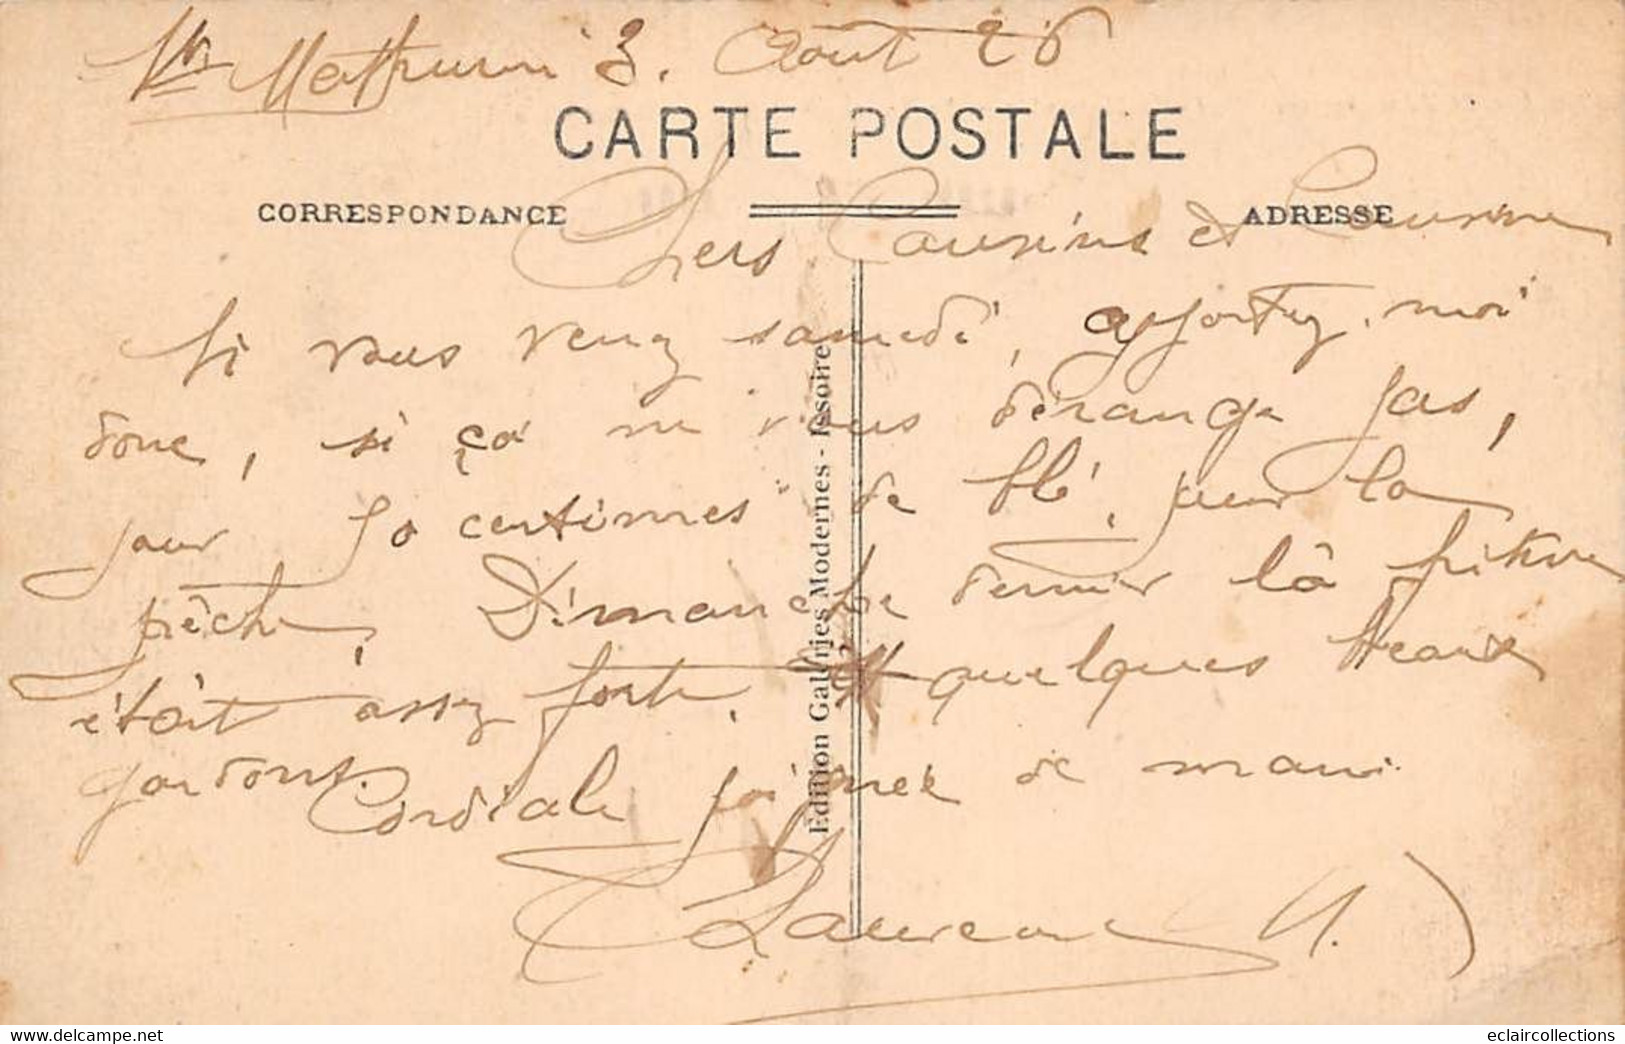 St Mathurin 3. Août 26
CARTE POSTALE
CORRESPONDANCE
ADRESSE
Chers Cousins et Cousine
Si vous venez samedi, apportez-moi
donc, si ça ne vous dérange pas,
pour 50 centimes de blé, pour la
pêche. Dimanche dernier la friture
était assez forte. et quelques beaux
gardons.
Cordiale poignée de main
Edition Galeries Modernes - Issoire
eclaircollections